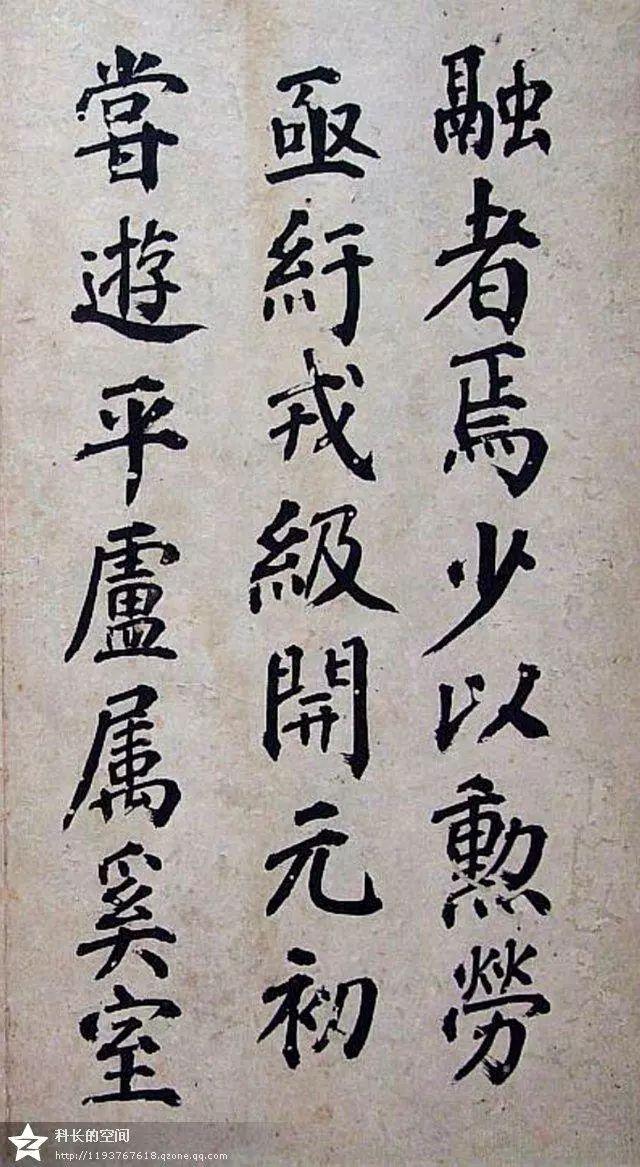 融者焉少以勲勞
亟紆戎級開元初
嘗遊平盧属奚室
科长的空间
http://1193767618.qzone.qq.com